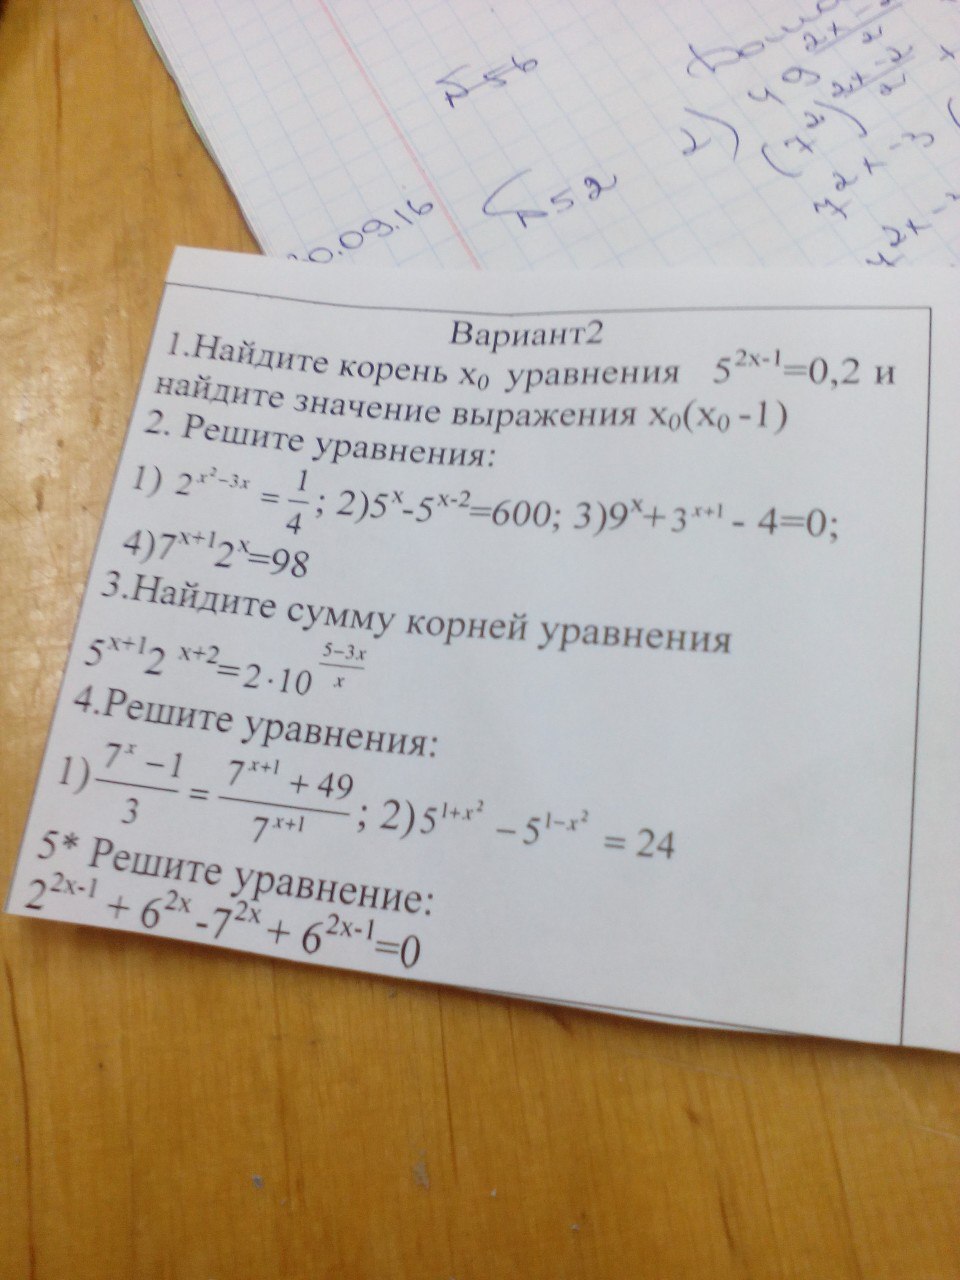 №56
№52
2) 49^((2x-2)/2)
(7²)^((2x-2)/2)
0.09.16
Вариант2
1.Найдите корень x₀ уравнения 5^(2x-1)=0,2 и
найдите значение выражения x₀(x₀ -1)
2. Решите уравнения:
1) 2^(x²−3x) = 1/4; 2)5^x-5^(x-2)=600; 3)9^x+3^(x+1) - 4=0;
4)7^(x+1)2^x=98
3.Найдите сумму корней уравнения
5^(x+1)2^(x+2)=2·10^((5−3x)/x)
4.Решите уравнения:
1) (7^x −1)/3 = (7^(x+1) + 49)/7^(x+1); 2)5^(1+x²) − 5^(1−x²) = 24
5* Решите уравнение:
2^(2x-1) + 6^(2x) -7^(2x) + 6^(2x-1)=0